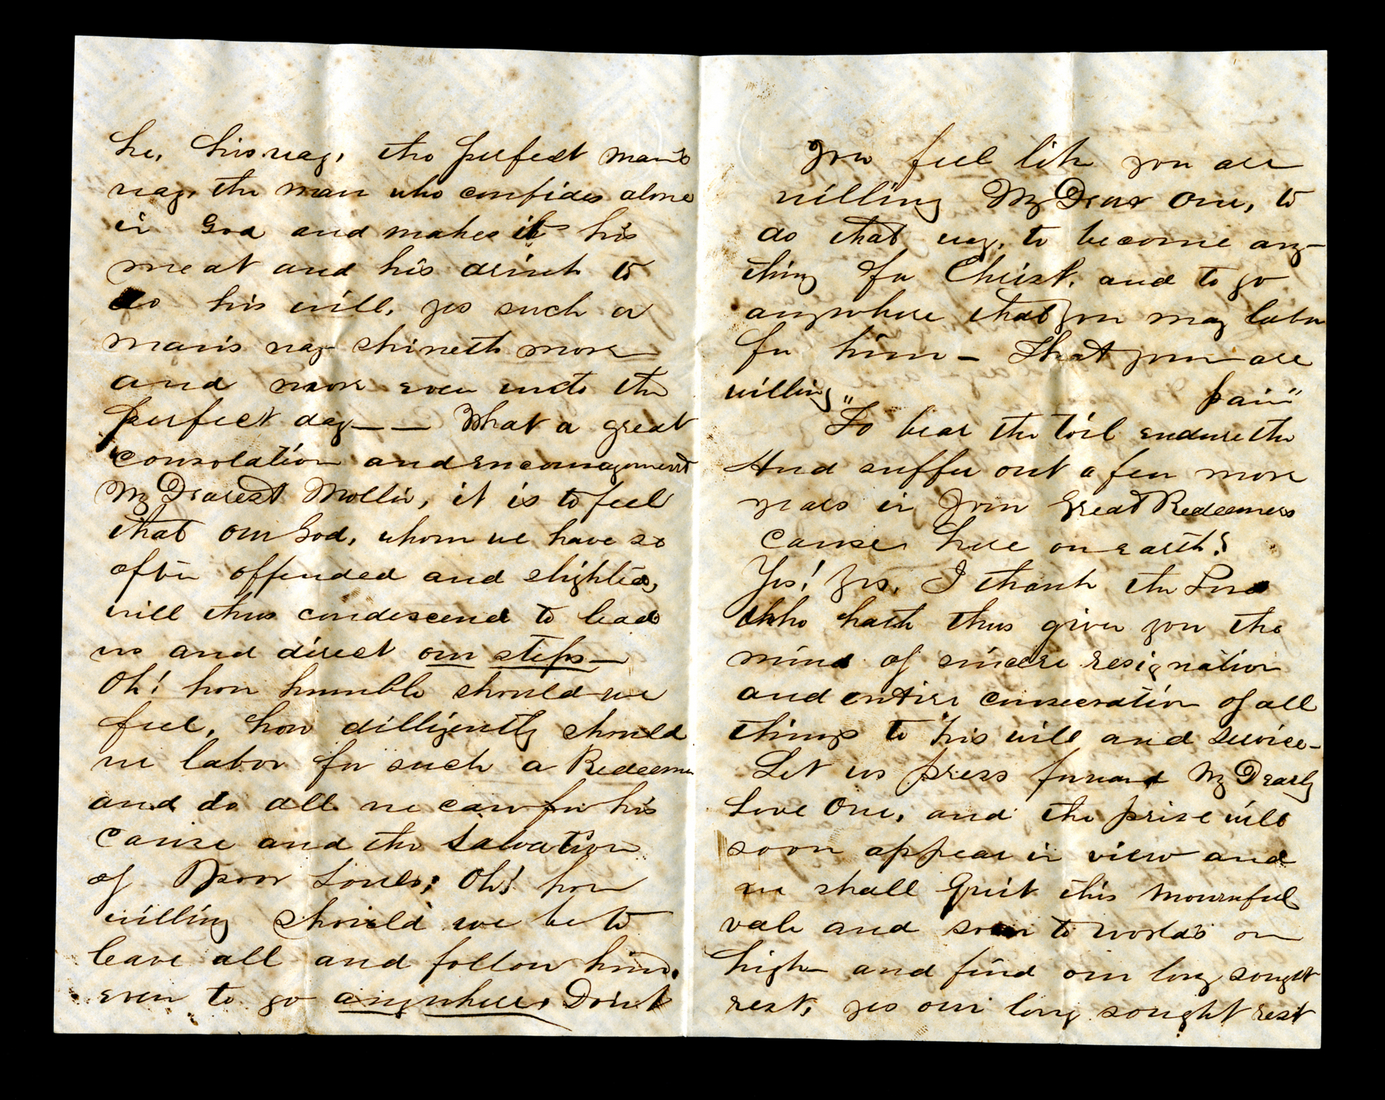 he, his way, the perfect man's
way, the man who confides alone
in God and makes it his
meat and his drink to
do his will, yes such a
man's way shineth more
and more even unto the
perfect day — — What a great
consolation and encouragement
My Dearest Mollie, it is to feel
that our God, whom we have so
often offended and slighted,
will thus condescend to lead
us and direct our steps —
Oh! how humble should we
feel, how dilligently should
we labor for such a Redeemer
and do all we can for his
cause and the Salvation
of Poor Souls; Oh! how
willing should we be to
leave all and follow him,
even to go anywhere, Don't
you feel like you are
willing My Dear One, to
do that way, to become any-
thing for Christ, and to go
anywhere that you may labor
for him — That you are
willing pain"
"To bear the toil endure the
And suffer out a few more
years in your Great Redeemers
cause here on earth?
Yes! Yes, I thank the Lord
Who hath thus given you the
mind of sincere resignation
and entire consecration of all
things to his will and service —
Let us press forward My Dearly
Love One, and the prize will
soon appear in view and
we shall Quit this Mournful
vale and soar to worlds on
high — and find our long sought
rest, yes our long sought rest